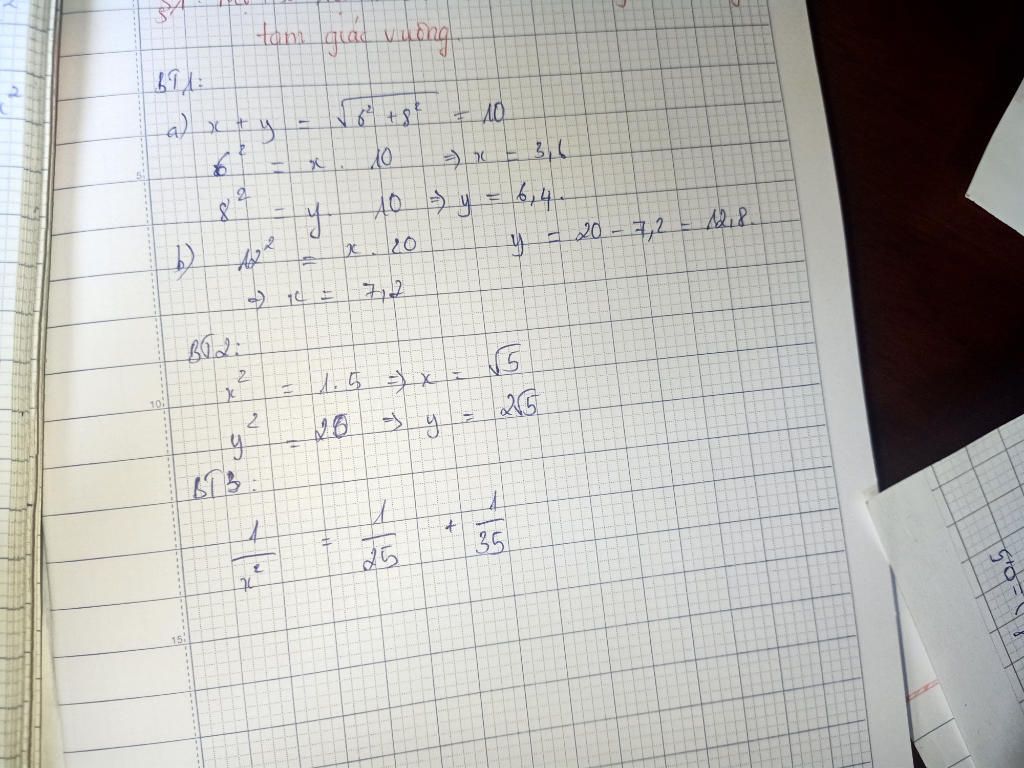 tam giác vuông.
BT1:
a) x + y = √6² + 8² = 10
6² = x . 10 ⇒ x = 3,6
5
8² = y . 10 ⇒ y = 6,4.
b) 12² = x . 20 y = 20 - 7,2 = 12,8.
⇒ x = 7,2
BT2:
x² = 1.5 ⇒ x = √5
10
y² = 20 ⇒ y = 2√5
BT3:
1/x² = 1/25 + 1/35
15